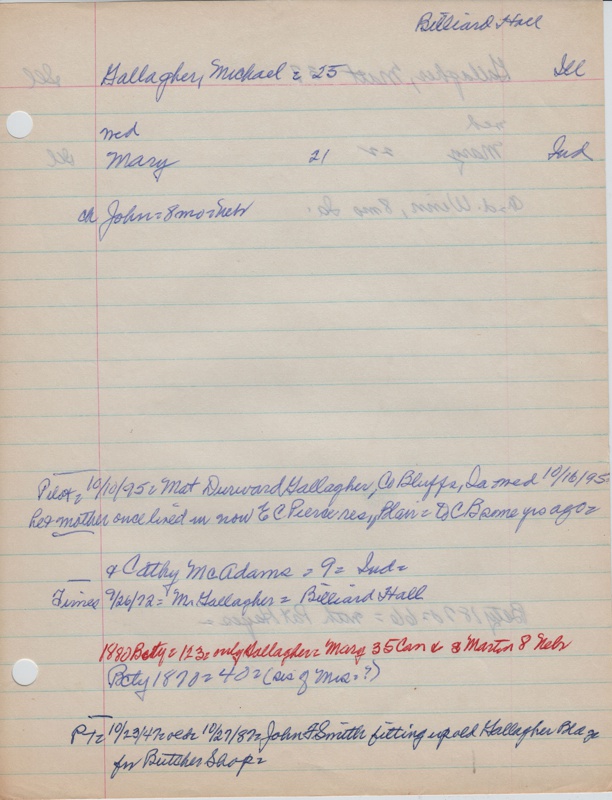 Billiard Hall
Gallagher, Michael = 25 Ill
med
Mary 21 Ind
ch John = 8 mo = Nebr
Pilot = 10/10/95 = Mat Durward Gallagher, Co Bluffs, Ia med 10/16/95
her mother once lived in now E C Pierce res, Blair = to C B some yrs ago =
& Cathy McAdams = 9 = Ind =
Times 9/26/72 = Mr Gallagher = Billiard Hall
1880 Bcty = 123 = Gallagher = Mary 35 Can & Martin 8 Nebr
Bcty 1870 = 40 = (sis of Mrs = ?)
PT = 10/23/47 = 10/27/87 = John F Smith fitting up old Gallagher Bldg
for Butcher Shop =